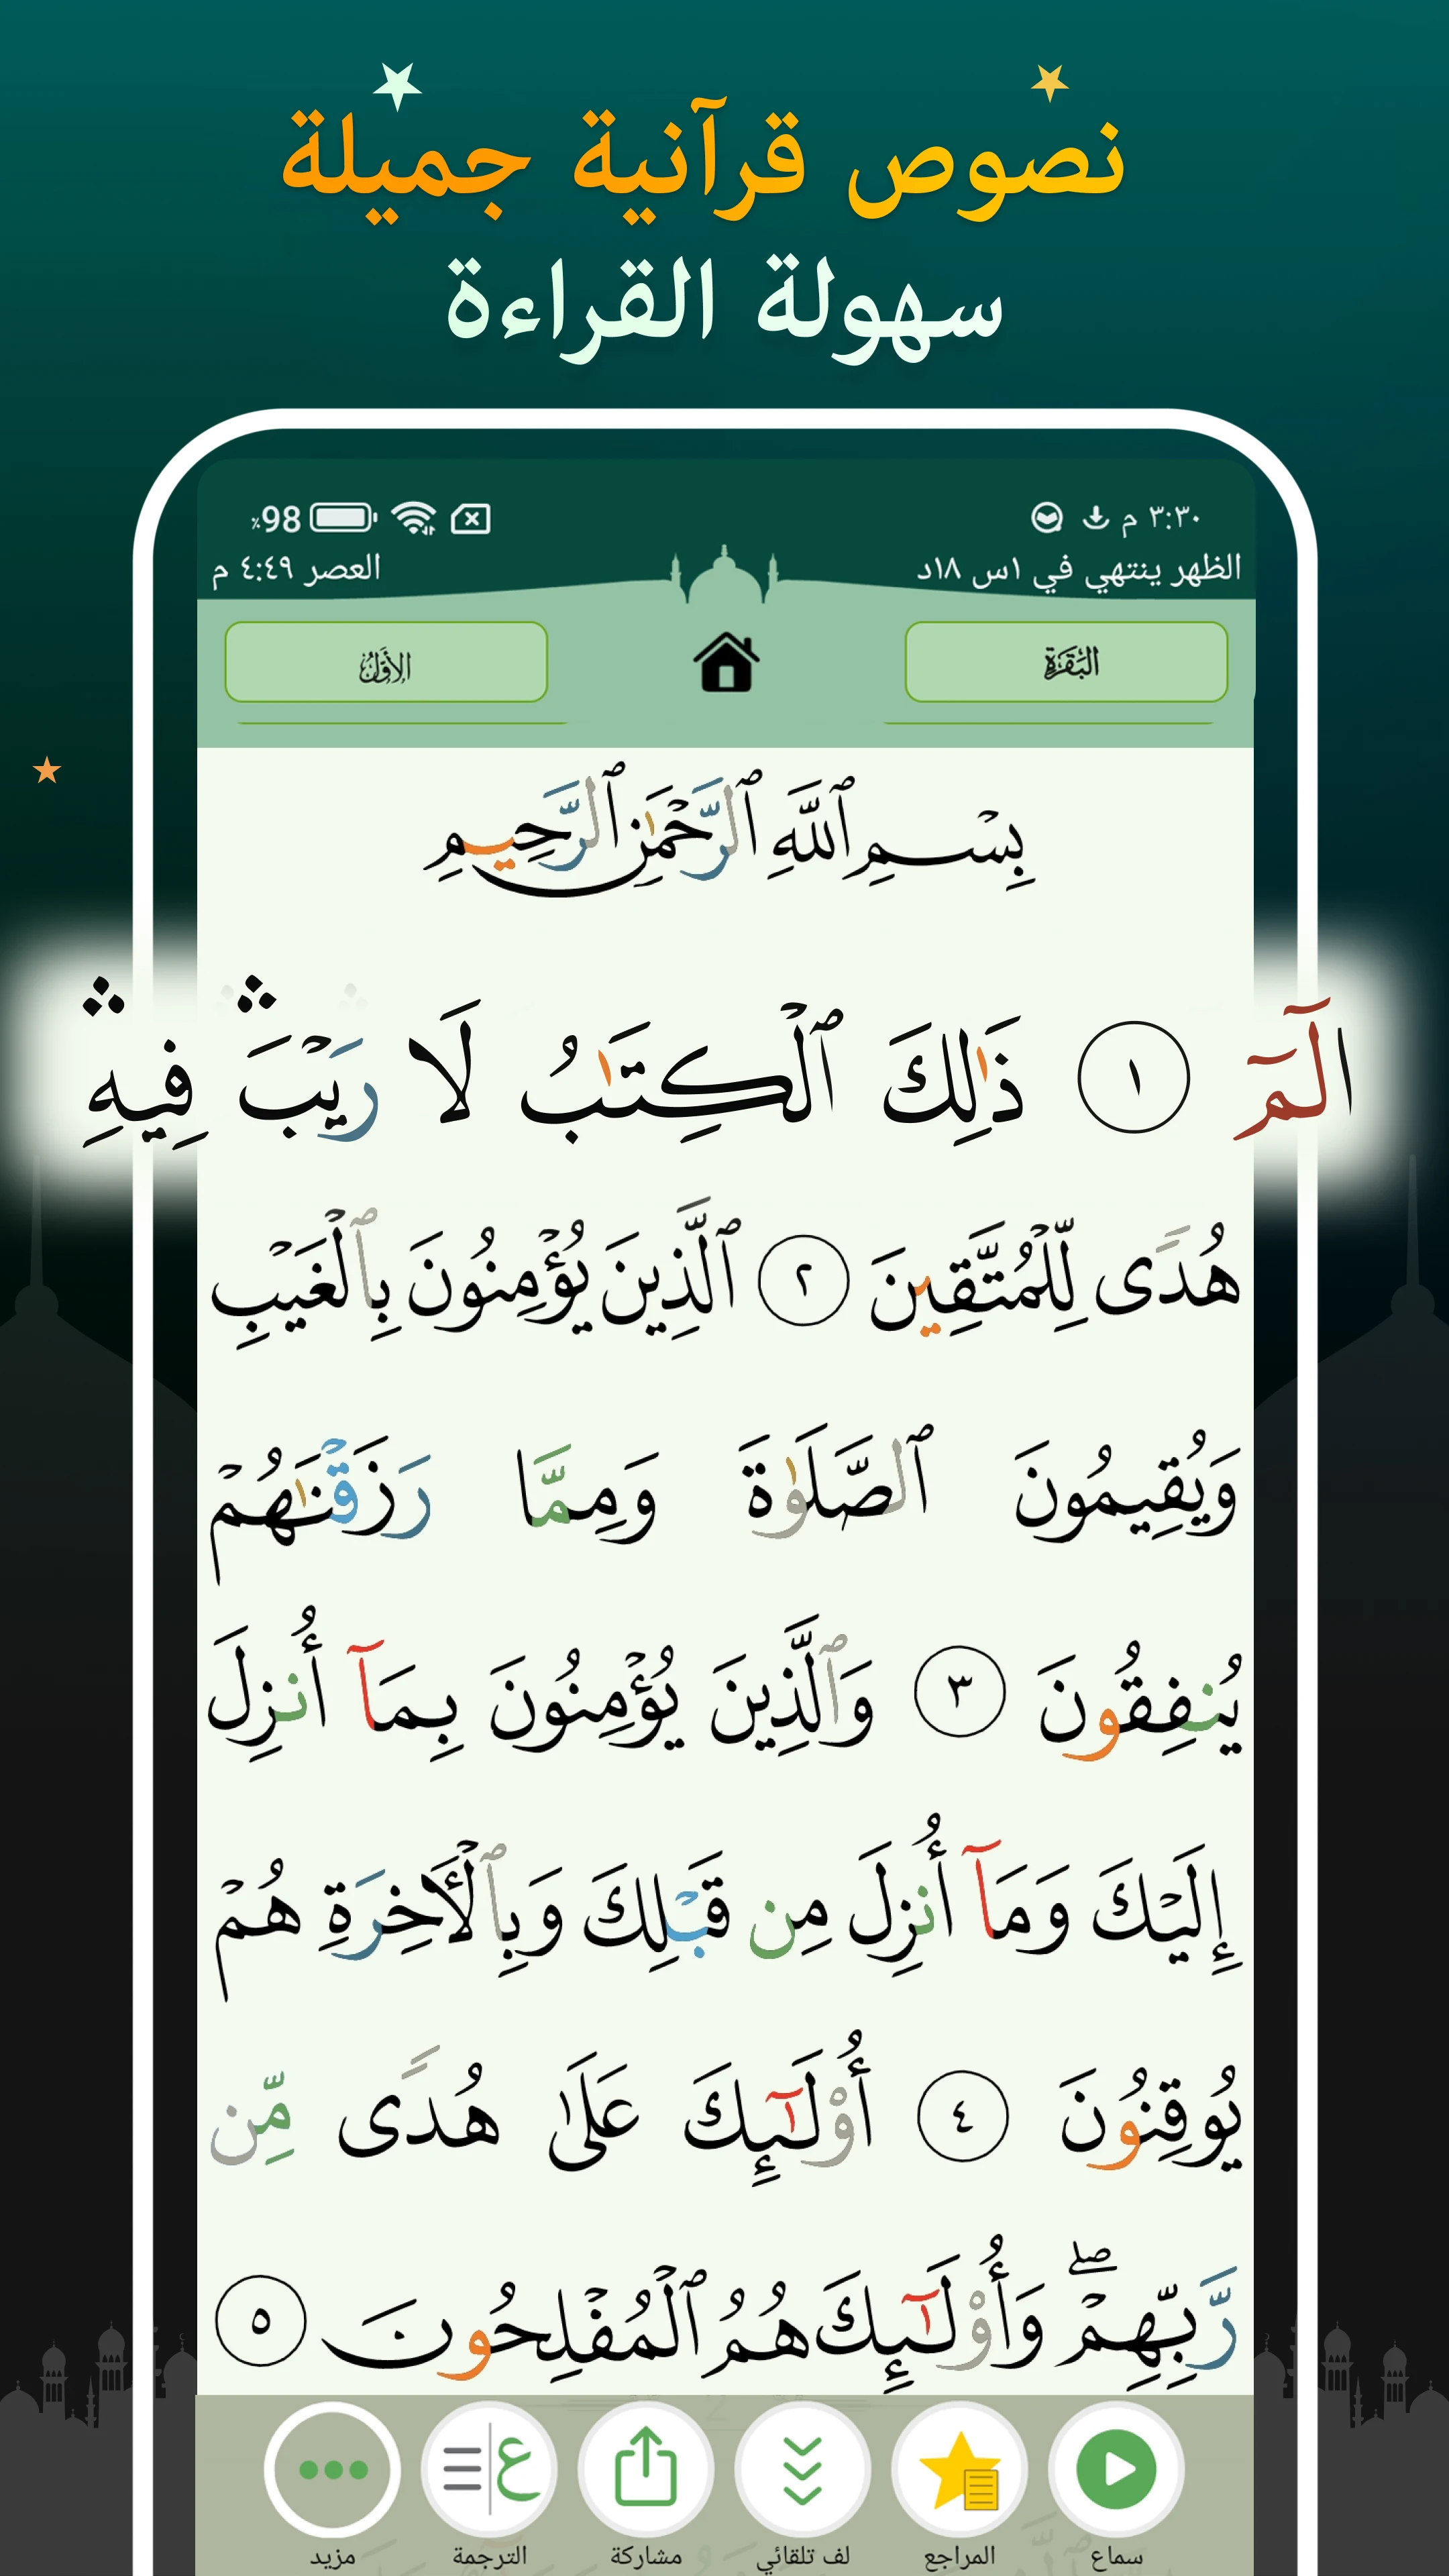 نصوص قرآنية جميلة
سهولة القراءة
٣:٣٠ م
98٪
الظهر ينتهي في ١س ١٨د
العصر ٤:٤٩ م
البَقَرَة
الأوّل
بِسْمِ ٱللَّهِ ٱلرَّحْمَٰنِ ٱلرَّحِيمِ
الٓمٓ ١ ذَٰلِكَ ٱلْكِتَٰبُ لَا رَيْبَ ۛ فِيهِ ۛ
هُدًى لِّلْمُتَّقِينَ ٢ ٱلَّذِينَ يُؤْمِنُونَ بِٱلْغَيْبِ
وَيُقِيمُونَ ٱلصَّلَوٰةَ وَمِمَّا رَزَقْنَٰهُمْ
يُنفِقُونَ ٣ وَٱلَّذِينَ يُؤْمِنُونَ بِمَآ أُنزِلَ
إِلَيْكَ وَمَآ أُنزِلَ مِن قَبْلِكَ وَبِٱلْأَخِرَةِ هُمْ
يُوقِنُونَ ٤ أُوْلَٰٓئِكَ عَلَىٰ هُدًى مِّن
رَّبِّهِمْ ۖ وَأُوْلَٰٓئِكَ هُمُ ٱلْمُفْلِحُونَ ٥
سماع
المراجع
لف تلقائي
مشاركة
الترجمة
مزيد